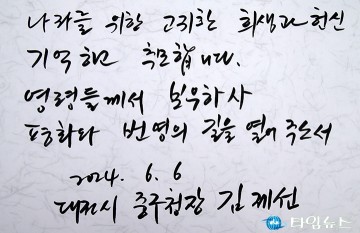 나라를 위한 고귀한 희생과 헌신
기억하고 추모합니다.
영령들께서 보우하사
평화와 번영의 길을 열어 주소서
2024. 6. 6
대전시 중구청장 김제선
타임뉴스